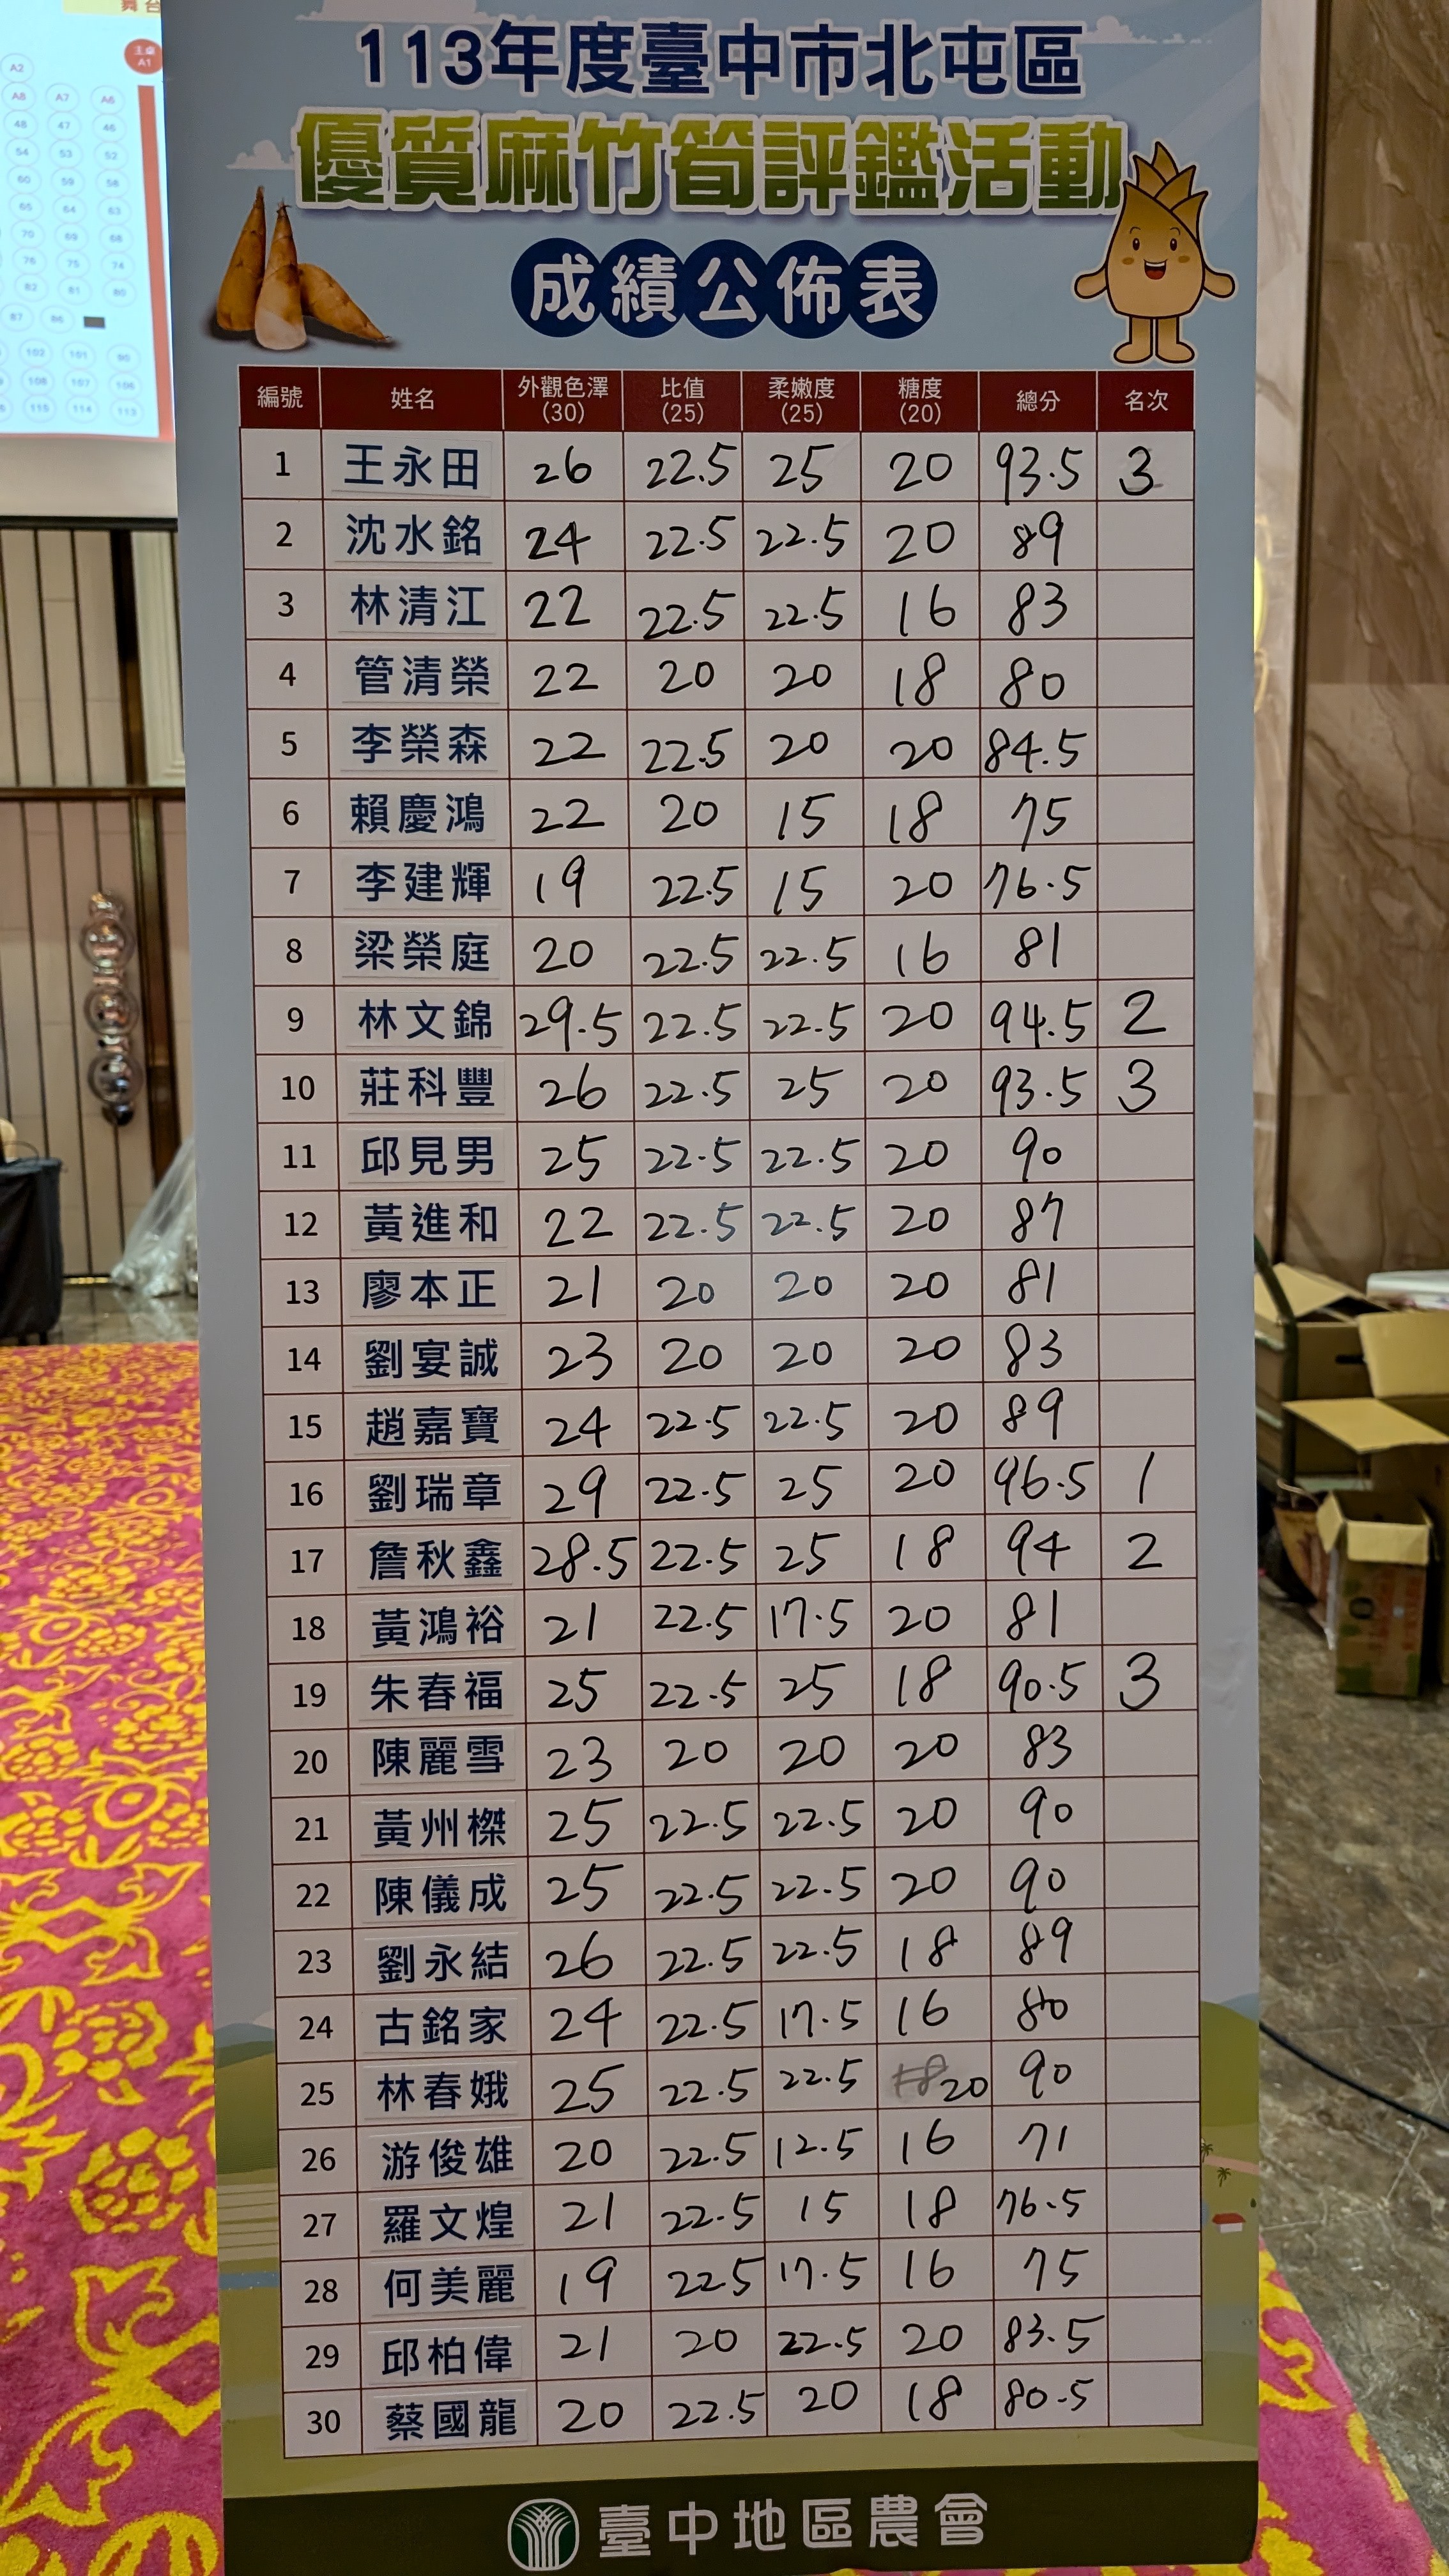 舞台
主桌
A1
A2
A8 A7 A6
48 47 46
54 53 52
60 59 58
65 64 63
70 69 68
76 75 74
82 81 80
87 86
102 101
108 107 106
115 114 113
113年度臺中市北屯區
優質麻竹筍評鑑活動
成績公佈表
編號 姓名 外觀色澤(30) 比值(25) 柔嫩度(25) 糖度(20) 總分 名次
1 王永田 26 22.5 25 20 93.5 3
2 沈水銘 24 22.5 22.5 20 89
3 林清江 22 22.5 22.5 16 83
4 管清榮 22 20 20 18 80
5 李榮森 22 22.5 20 20 84.5
6 賴慶鴻 22 20 15 18 75
7 李建輝 19 22.5 15 20 76.5
8 梁榮庭 20 22.5 22.5 16 81
9 林文錦 29.5 22.5 22.5 20 94.5 2
10 莊科豐 26 22.5 25 20 93.5 3
11 邱見男 25 22.5 22.5 20 90
12 黃進和 22 22.5 22.5 20 87
13 廖本正 21 20 20 20 81
14 劉宴誠 23 20 20 20 83
15 趙嘉寶 24 22.5 22.5 20 89
16 劉瑞章 29 22.5 25 20 96.5 1
17 詹秋鑫 28.5 22.5 25 18 94 2
18 黃鴻裕 21 22.5 17.5 20 81
19 朱春福 25 22.5 25 18 90.5 3
20 陳麗雪 23 20 20 20 83
21 黃州榤 25 22.5 22.5 20 90
22 陳儀成 25 22.5 22.5 20 90
23 劉永結 26 22.5 22.5 18 89
24 古銘家 24 22.5 17.5 16 80
25 林春娥 25 22.5 22.5 18 20 90
26 游俊雄 20 22.5 12.5 16 71
27 羅文煌 21 22.5 15 18 76.5
28 何美麗 19 22.5 17.5 16 75
29 邱柏偉 21 20 22.5 20 83.5
30 蔡國龍 20 22.5 20 18 80.5
臺中地區農會